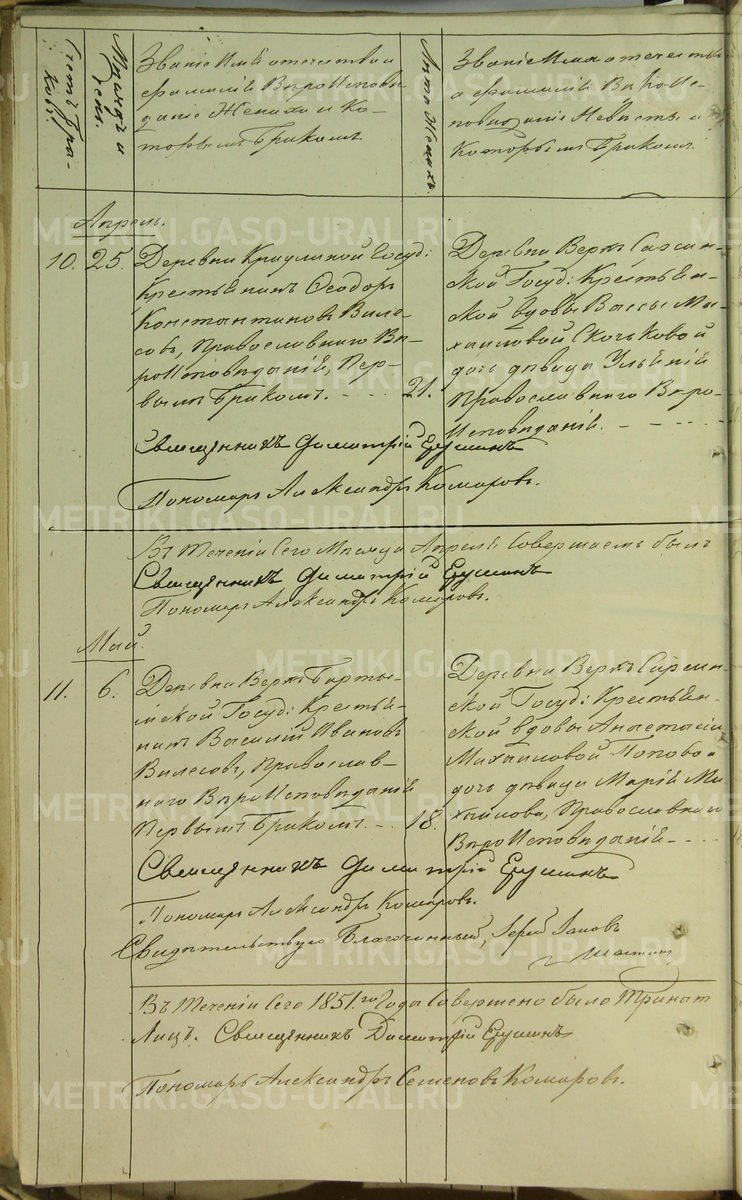 Счетъ Бра-
ковъ.
Мѣсяцъ и
день.
Званіе Имя отечество и
фамилія Вѣроисповѣ
даніе Жениха и Ко-
торымъ бракомъ
Лѣта Жениха
Званіе Имя отечество
и фамилія Вѣроис-
повѣданіе Невѣсты и
Которымъ бракомъ
Апрель.
10. 25.
Деревни Крауминой Госуд:
Крестьянинъ Ѳеодоръ
Константиновъ Виле-
совъ, Православнаго Вѣ-
роисповѣданія, Пер-
вымъ бракомъ. 21.
Деревни Верхъ Саксин-
ской Госуд: Крестьян-
ской вдовы Вассы Ми-
хайловой Скочковой
дочь дѣвица Ульянія
Православнаго Вѣро-
исповѣданія.
Священникъ Димитрій
Пономарь Александръ Комаровъ.
Въ теченіи сего Месяца Апреля Совершаемъ былъ
Священникъ Димитрій
Пономарь Александръ Комаровъ.
Май.
11. 6.
Деревни Верхъ Барты-
мской Госуд: Крестья-
нинъ Василій Ивановъ
Вилесовъ, Православ-
наго Вѣроисповѣданія
Первымъ бракомъ. 18.
Деревни Верхъ
ской Госуд: Крестьян-
ской вдовы Анастасіи
Михайловой Попово
дочь дѣвица Марія Ми-
хайлова, Православнаго
Вѣроисповѣданія
Священникъ Димитрій
Пономарь Александръ Комаровъ.
Свидѣтельствую Благочинный, Іерей
Въ теченіи сего 1851.го Года Совершено было
Лицъ. Священникъ Димитрій
Пономарь Александръ Семеновъ Комаровъ.
METRIKI.GASO-URAL.RU